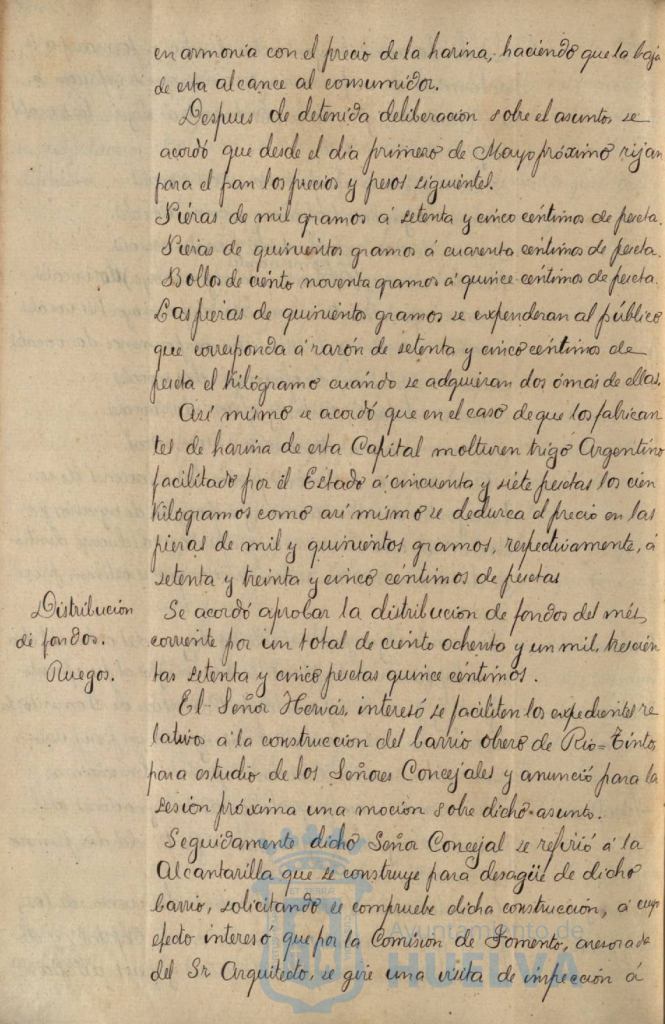 en armonía con el precio de la harina, haciendo que la baja
de esta alcance al consumidor.
Despues de detenida deliberacion sobre el asuntos se
acordó que desde el dia primero de Mayo próximo rijan
para el pan los precios y pesos siguientes.
Piezas de mil gramos á setenta y cinco céntimos de peseta.
Piezas de quinientos gramos á cuarenta céntimos de peseta.
Bollos de ciento noventa gramos á quince céntimos de peseta.
Las piezas de quinientos gramos se expenderan al público
que corresponda á razón de setenta y cinco céntimos de
peseta el Kilógramo cuándo se adquieran dos ó mas de ellas.
Así mismo se acordó que en el caso de que los fabrican
tes de harina de esta Capital molturen trigo Argentino
facilitado por el Estado á cincuenta y siete pesetas los cien
Kilogramos como asi mismo se deduzca el precio en las
piezas de mil y quinientos gramos, respectivamente, á
setenta y treinta y cinco céntimos de pesetas
Distribución
de fondos.
Se acordó aprobar la distribucion de fondos del més
corriente por un total de ciento ochenta y un mil, trescien
tas setenta y cinco pesetas quince céntimos.
Ruegos.
El Señor Hervás, interesó se faciliten los expedientes re
lativos á la construccion del barrio obrero de Rio=Tinto,
para estudio de los Señores Concejales y anunció para la
sesion próxima una mocion sobre dicho asunto.
Seguidamente dicho Señor Concejal se refirió á la
Alcantarilla que se construye para desagüe de dicho
barrio, solicitando se compruebe dicha construccion, á cuyo
efecto interesó que por la Comision de Fomento, asesorada
del Sr Arquitecto, se gire una visita de inspeccion á
Ayuntamiento de
HUELVA